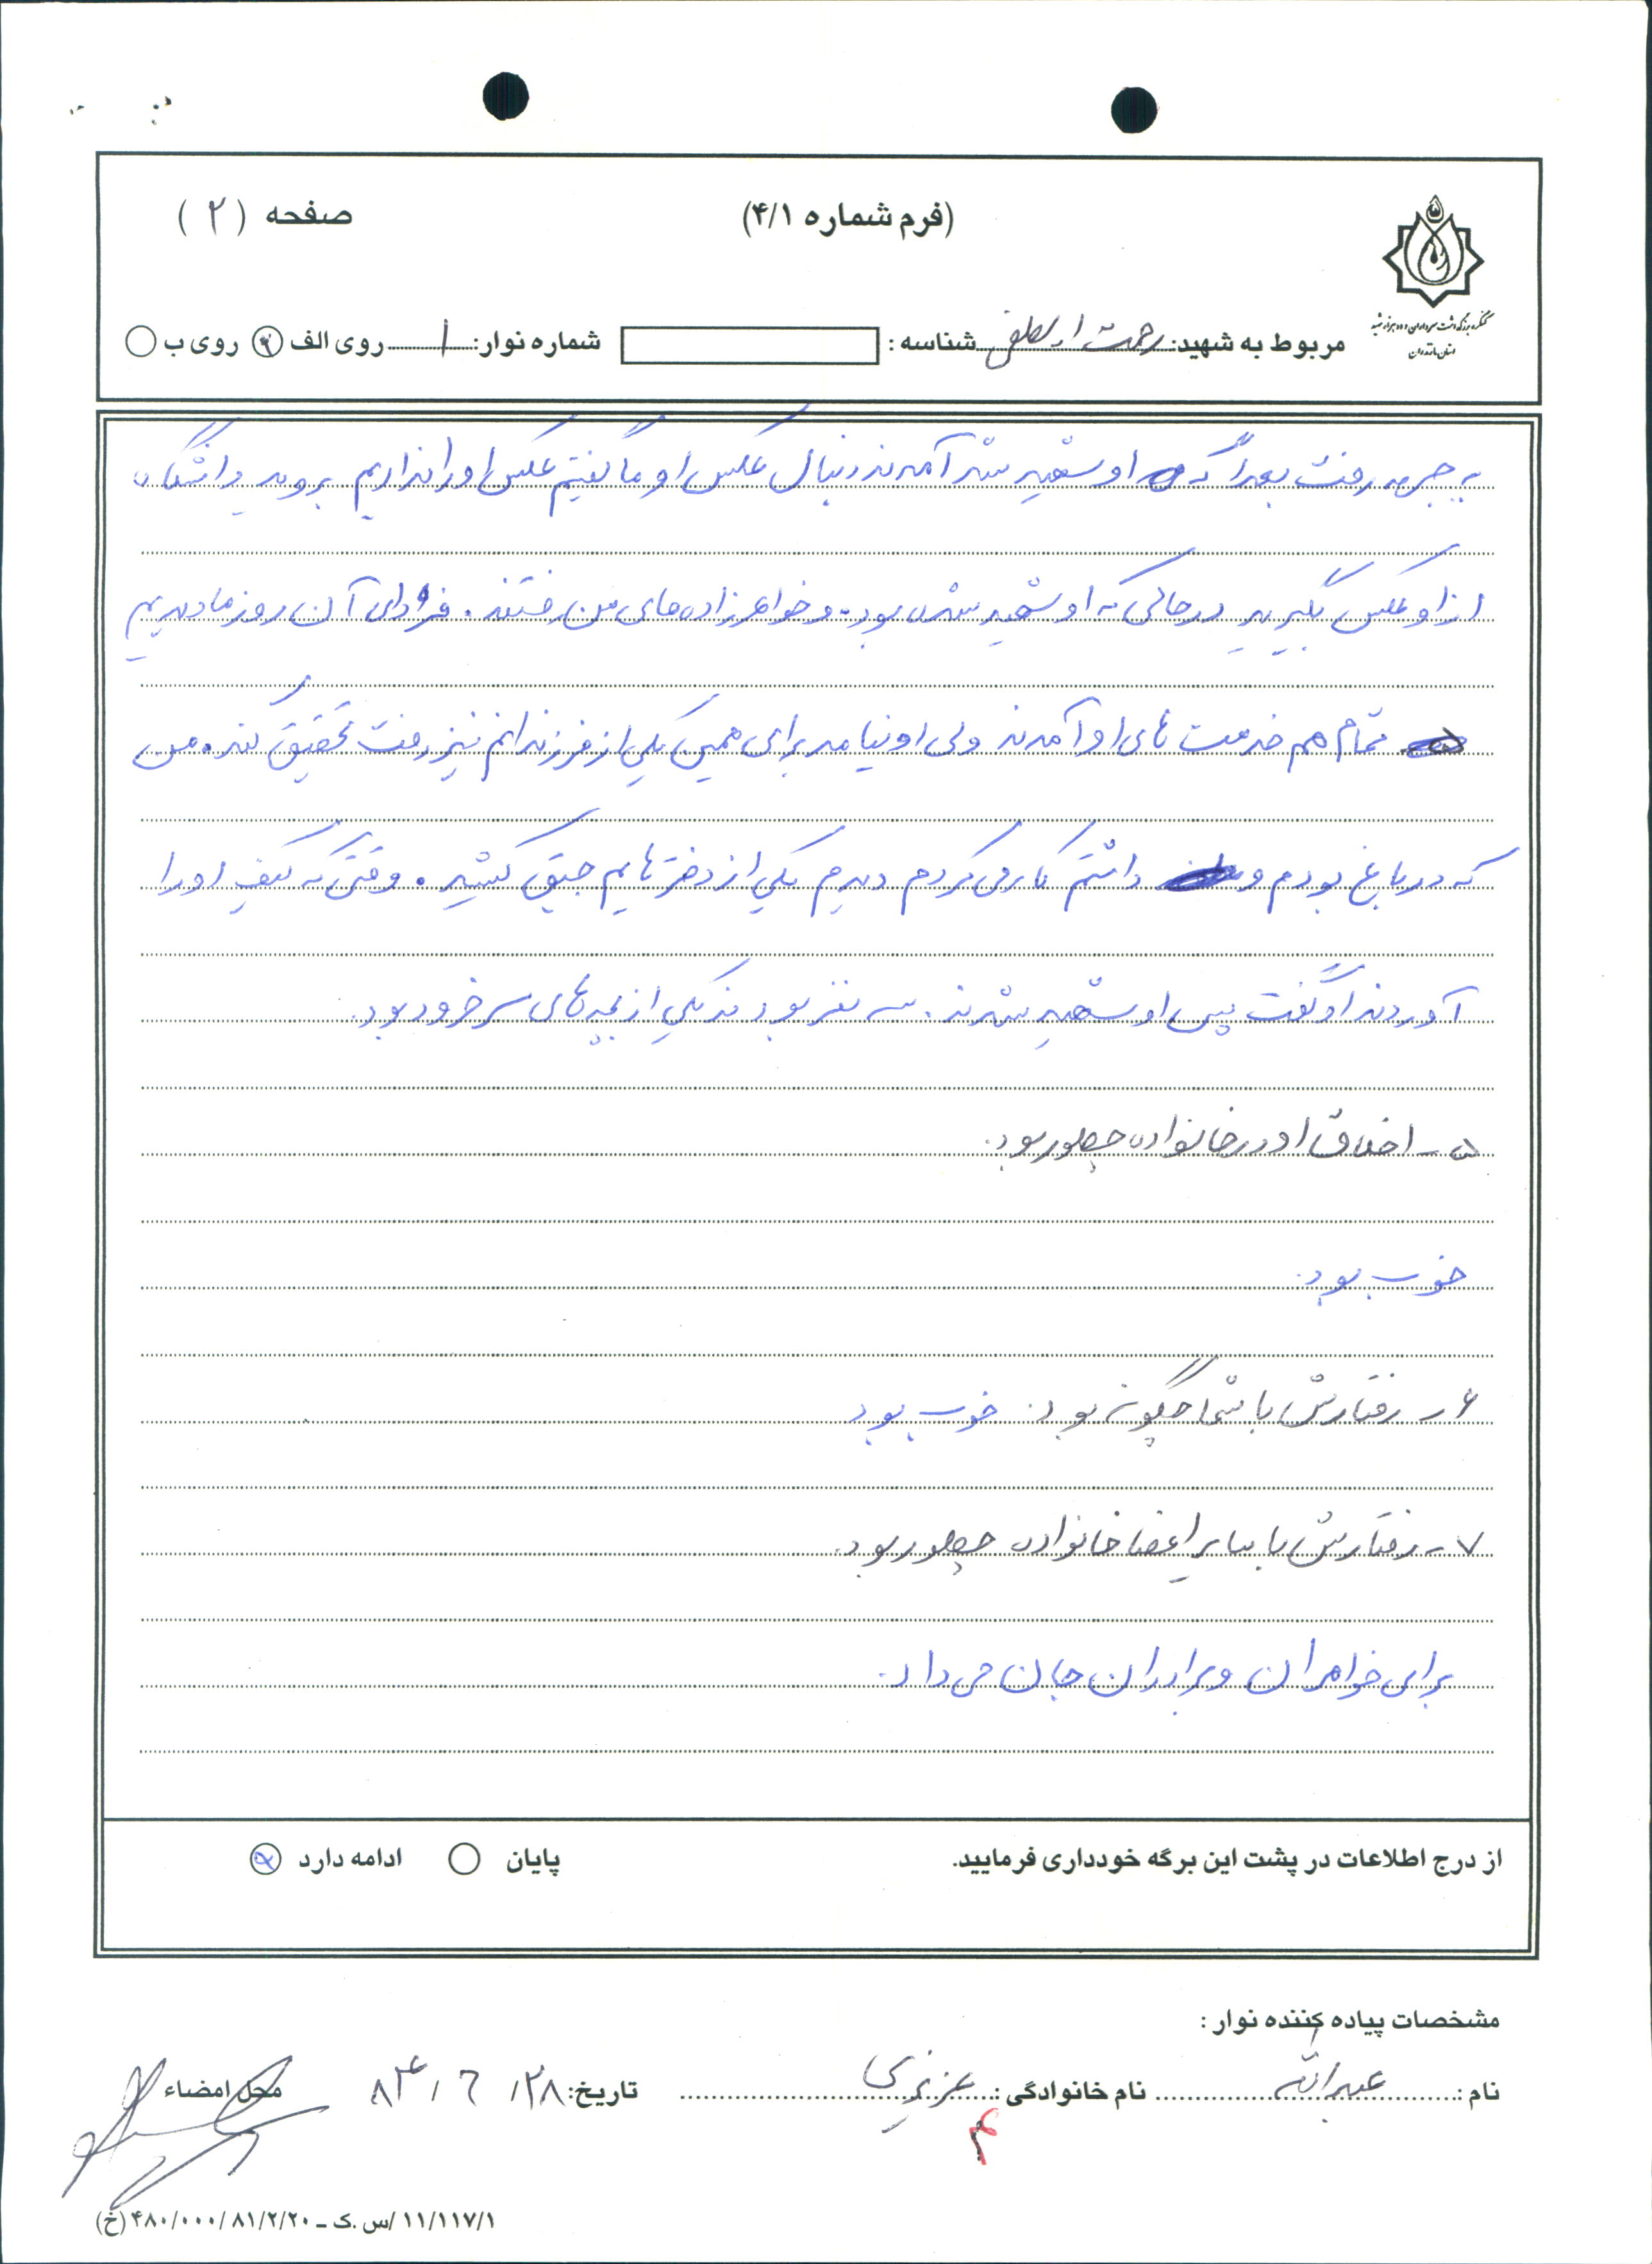 (فرم شماره ۴/۱)
صفحه (۲)
کنگره بزرگداشت سرداران و ده هزار شهید
استان مازندران
مربوط به شهید: رحمت شناسه : شماره نوار: ۱ روی الف روی ب
به جبهه رفت بعد از که او شهید شد آمدند دنبال عکس او ما گفتیم عکس او را نداریم بروید دانشگاه
از او عکس بگیرید در حالی که او شهید شده بود. و خواهرزاده های من رفتند. فردای آن روز ما دیدیم
تمام هم خدمت های او آمدند ولی او نیامد برای همین یکی از فرزندانم نیز رفت تحقیق کند. من
که در باغ بودم و داشتم کار می کردم دیدم یکی از دخترهایم جیق کشید. وقتی که کیف او را
آوردند او گفت پس او شهید شدند. سه نفر بودند یکی از بچه های سرخرود بود.
۵- اخلاق او در خانواده چطور بود.
خوب بود.
۶- رفتارش با شما چگونه بود. خوب بود
۷- رفتارش با سایر اعضا خانواده چطور بود.
برای خواهران و برادران جان می داد.
از درج اطلاعات در پشت این برگه خودداری فرمایید.
پایان ادامه دارد
مشخصات پیاده کننده نوار :
نام : عبدالله نام خانوادگی : عزیزی تاریخ: ۲۸/ ۶ / ۸۴ محل امضاء
۴
۱۱/۱۱۷/۱ /س .ک ـ ۴۸۰/۰۰۰/ ۸۱/۲/۲۰ (خ)